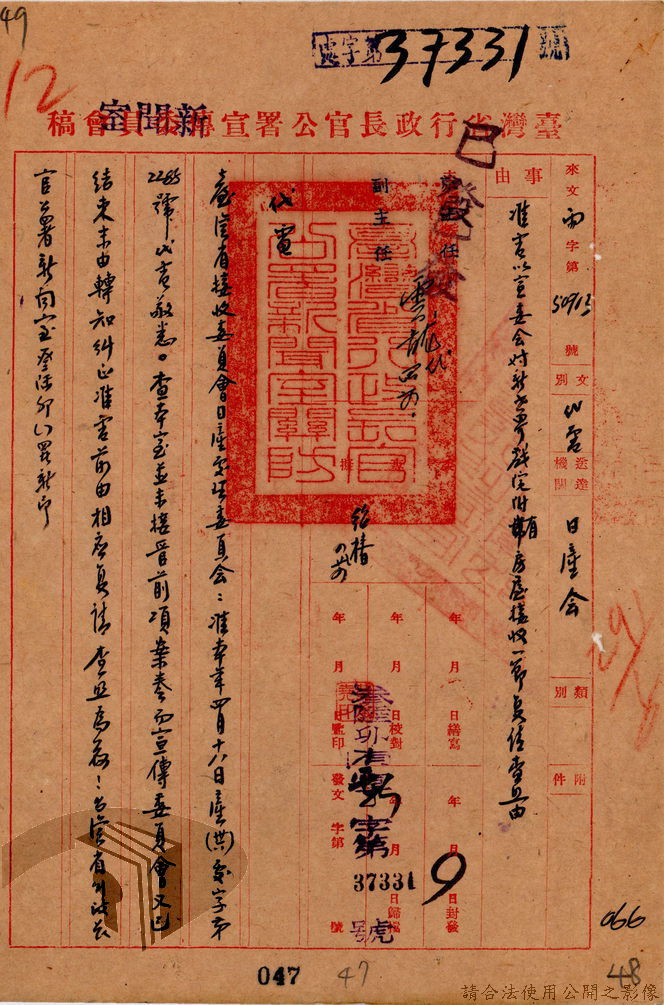 49
12
處字第37331號
新聞室
臺灣省行政長官公署宣傳委員會稿
已發
來文 字第50913號
文別 代電
送達機關 日產會
類別
附件
事由
准電以宣委會對新世界戲院附有房屋接收一節復請查照由
主任
副主任
代電
臺灣省行政長官公署新聞室關防
年 月 日繕寫
年 月 日校對
年 月 日監印
年 月 日封發
年 月 日歸檔
發文 字第37331號
臺灣省接收委員會日產處理委員會：准本年四月十八日產(洪)處字第
2285號代電敬悉。查本室並未接管前項案卷而宣傳委員會又已
結束未由轉知糾正准電前由相應復請查照為荷！台灣省行政長
官公署新聞室
9
29/4
066
047
47
48
請合法使用公開之影像